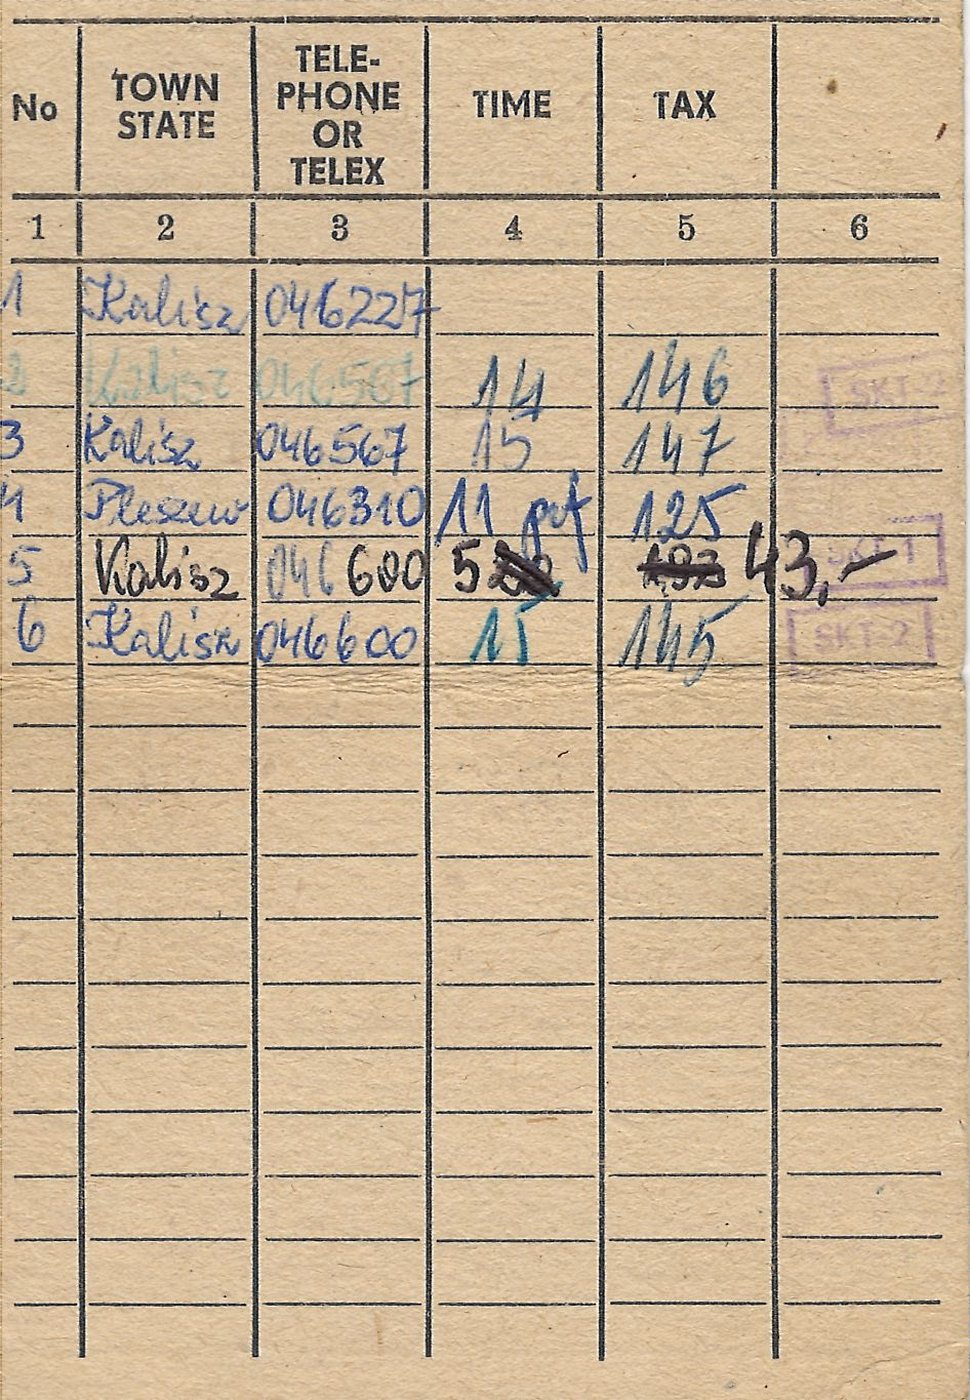 No TOWN STATE TELE-PHONE OR TELEX TIME TAX
1 2 3 4 5 6
1 Kalisz 046227
2 Kalisz 046567 14 146 SKT-2
3 Kalisz 046567 15 147
4 Pleszew 046310 11 pdf 125
5 Kalisz 046 600 5 43,- SKT-1
6 Kalisz 046600 15 145 SKT-2